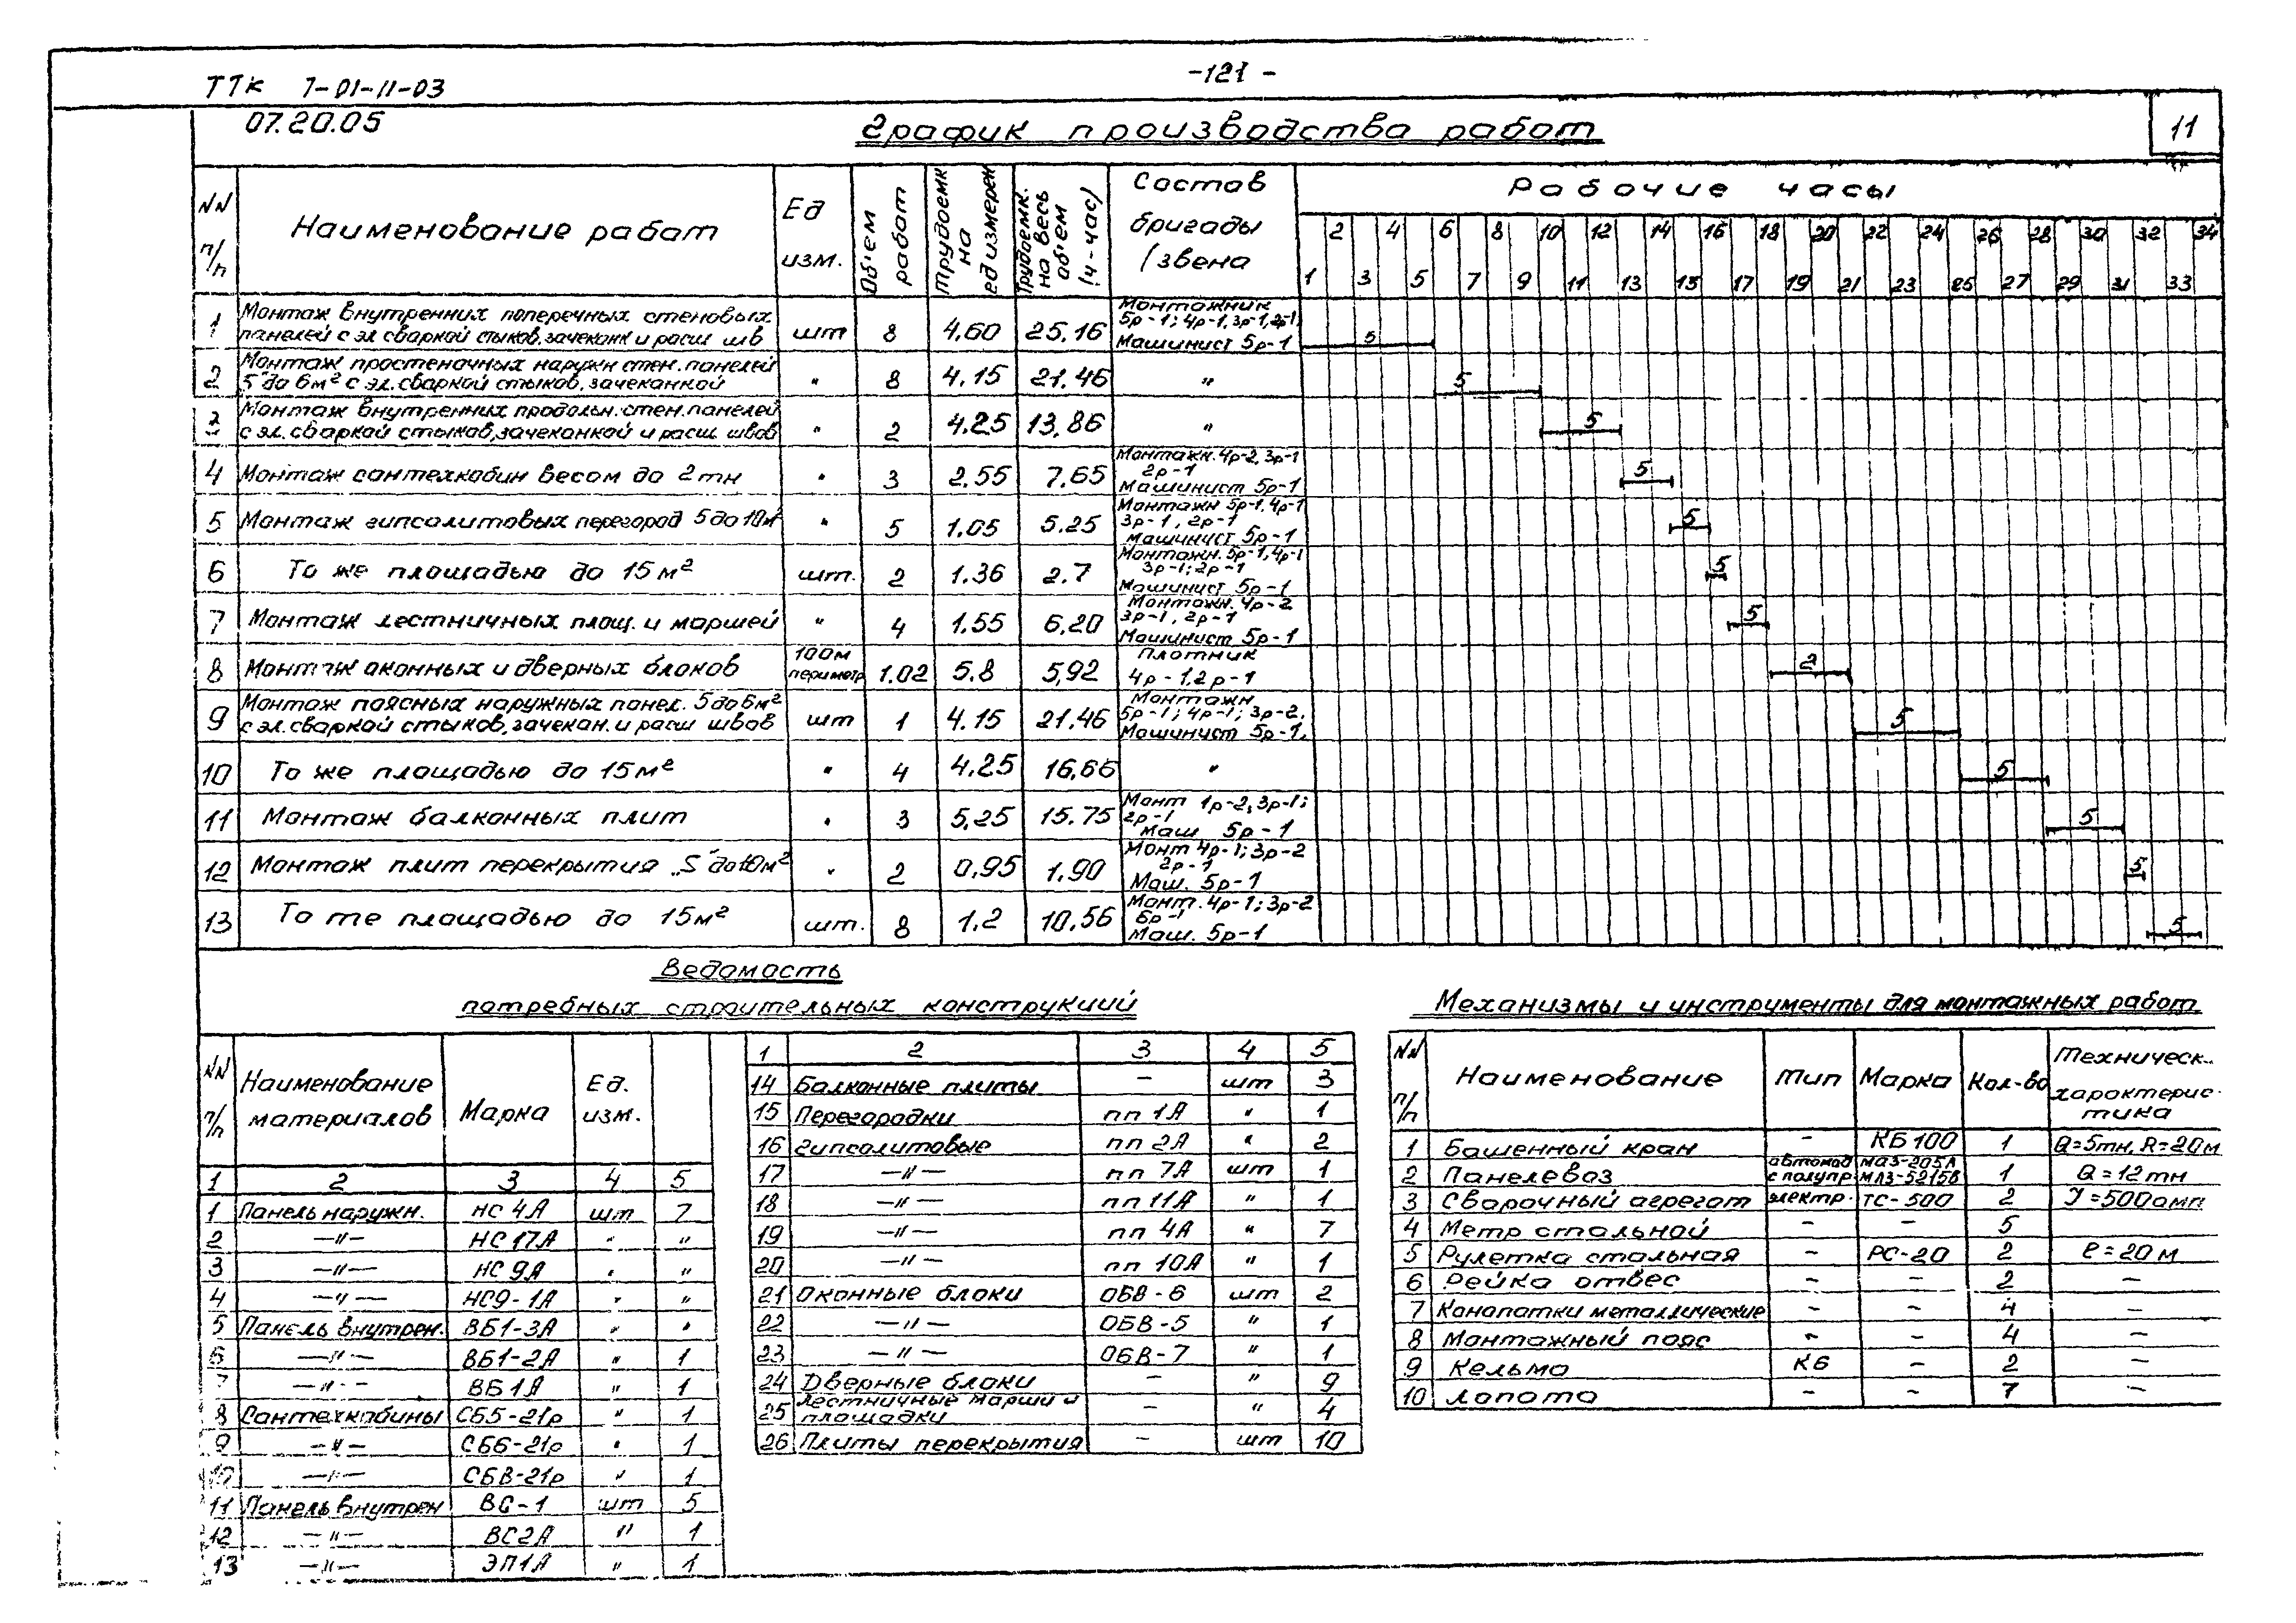 ТТК 7-01-11-03
-121-
07.20.05
График производства работ
11
NN п/п
Наименование работ
Ед изм.
Объем работ
Трудоемк на ед измерен
Трудоемк. на весь объем (ч-час)
Состав бригады (звена
Рабочие часы
2 4 6 8 10 12 14 16 18 20 22 24 26 28 30 32 34
1 3 5 7 9 11 13 15 17 19 21 23 25 27 29 31 33
1 Монтаж внутренних поперечных стеновых панелей с эл сваркой стыков, зачеканк и расш шв шт 8 4.60 25.16 Монтажник 5р-1; 4р-1, 3р-1, 2р-1, Машинист 5р-1 5
2 Монтаж простеночных наружн стен. панелей S до 6м² с эл. сваркой стыков, зачеканкой " 8 4.15 21.46 " 5
3 Монтаж внутренних продольн. стен. панелей с эл. сваркой стыков, зачеканкой и расш. швов " 2 4.25 13.86 " 5
4 Монтаж сантехкабин весом до 2тн " 3 2.55 7.65 Монтажн. 4р-2, 3р-1 2р-1 Машинист 5р-1 5
5 Монтаж гипсолитовых перегород S до 10м² " 5 1.05 5.25 Монтажн 5р-1, 4р-1 3р-1, 2р-1 Машинист 5р-1 5
6 То же площадью до 15м² шт. 2 1.36 2.7 Монтажн. 5р-1, 4р-1 3р-1; 2р-1 Машинист 5р-1 5
7 Монтаж лестничных площ. и маршей " 4 1.55 6.20 Монтажн. 4р-2 3р-1, 2р-1 Машинист 5р-1 5
8 Монтаж оконных и дверных блоков 100м периметр 1.02 5.8 5,92 Плотник 4р-1, 2р-1 2
9 Монтаж поясных наружных панел. S до 6м² с эл. сваркой стыков, зачекан. и расш швов шт 1 4.15 21.46 Монтажн 5р-1; 4р-1; 3р-2, Машинист 5р-1, 5
10 То же площадью до 15м² " 4 4.25 16,66 " 5
11 Монтаж балконных плит " 3 5,25 15.75 Монт 1р-2, 3р-1; 2р-1 Маш 5р-1 5
12 Монтаж плит перекрытия „S" до 10м² " 2 0,95 1.90 Монт 4р-1; 3р-2 2р-1 Маш. 5р-1 5
13 То те площадью до 15м² шт. 8 1.2 10.56 Монт. 4р-1; 3р-2 6р-1 Маш. 5р-1 5
Ведомость
потребных строительных конструкций
NN п/п Наименование материалов Марка Ед. изм.
1 2 3 4 5
1 Панель наружн. НС 4А шт 7
2 —"— НС 17А " "
3 —"— НС 9А " "
4 —"— НС9-1А " "
5 Панель внутрен. ВБ1-3А " "
6 —"— ВБ1-2А " 1
7 —"— ВБ1А " 1
8 Сантехкабины СБ5-21р " 1
9 —"— СБ6-21р " 1
10 —"— СБВ-21р " 1
11 Панель внутрен ВС-1 шт 5
12 —"— ВС2А " 1
13 —"— ЭП1А " 1
1 2 3 4 5
14 Балконные плиты — шт 3
15 Перегородки пп 1А " 1
16 гипсолитовые пп 2А " 2
17 —"— пп 7А шт 1
18 —"— пп 11А " 1
19 —"— пп 4А " 7
20 —"— пп 10А " 1
21 Оконные блоки ОБВ-6 шт 2
22 —"— ОБВ-5 " 1
23 —"— ОБВ-7 " 1
24 Дверные блоки — " 9
25 Лестничные марши и площадки — " 4
26 Плиты перекрытия — шт 10
Механизмы и инструменты для монтажных работ
NN п/п Наименование Тип Марка Кол-во Техническ. характеристика
1 Башенный кран — КБ 100 1 Q=5тн, R=20м
2 Панелевоз автомод с полупр. МАЗ-205А МАЗ-5215В 1 Q=12тн
3 Сварочный агрегат электр. ТС-500 2 J=500амп
4 Метр стальной — — 5
5 Рулетка стальная — РС-20 2 ℓ=20м
6 Рейка отвес — — 2 —
7 Конопатки металлические — — 4 —
8 Монтажный пояс — — 4 —
9 Кельма КБ — 2 —
10 Лопата — — 7 —